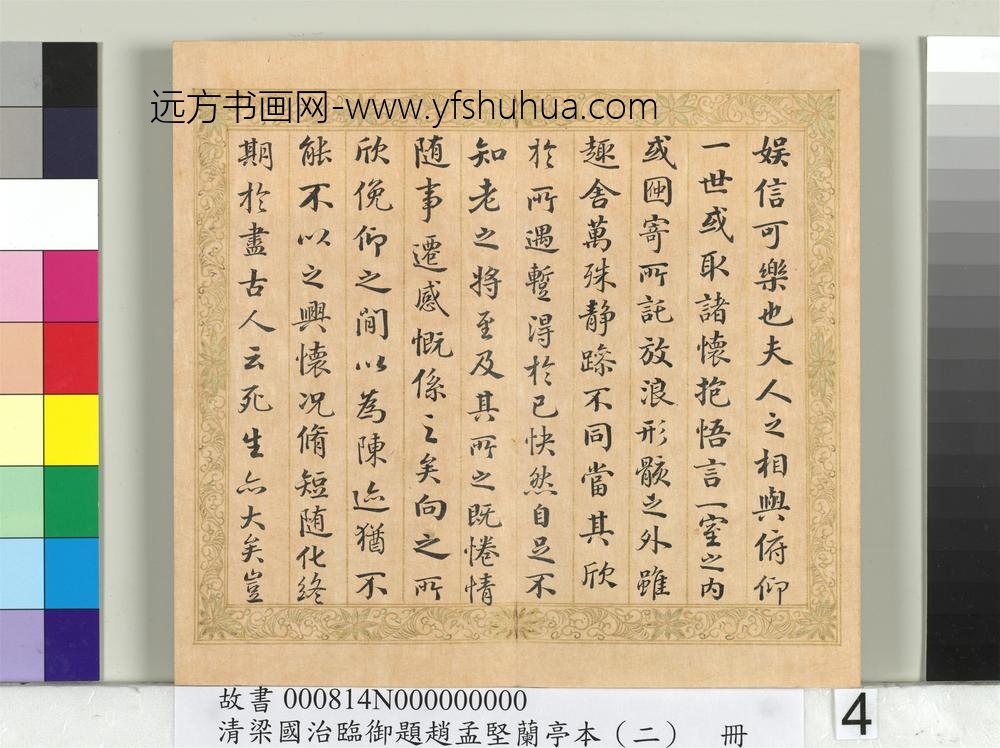 远方书画网-www.yfshuhua.com
娛信可樂也夫人之相與俯仰
一世或取諸懷抱悟言一室之内
或因寄所託放浪形骸之外雖
趣舍萬殊静躁不同當其欣
於所遇暫得於己快然自足不
知老之将至及其所之既惓情
随事遷感慨係之矣向之所
欣俛仰之間以為陳迹猶不
能不以之興懷况脩短随化終
期於盡古人云死生亦大矣豈
故書000814N000000000
清梁國治臨御題趙孟堅蘭亭本（二） 冊
4